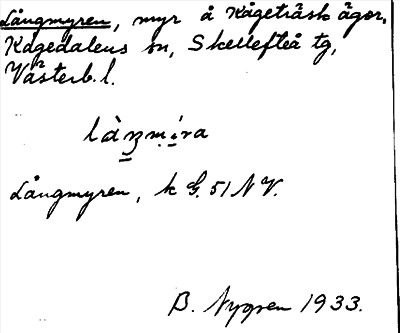 Långmyren, myr å Kågeträsk ägor,
Kågedalens sn, Skellefteå tg,
Västerb. l.
Långmyren, k G. 51 N V.
B. Nygren 1933.